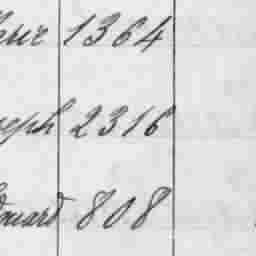 1364
eph 2316
dward 808